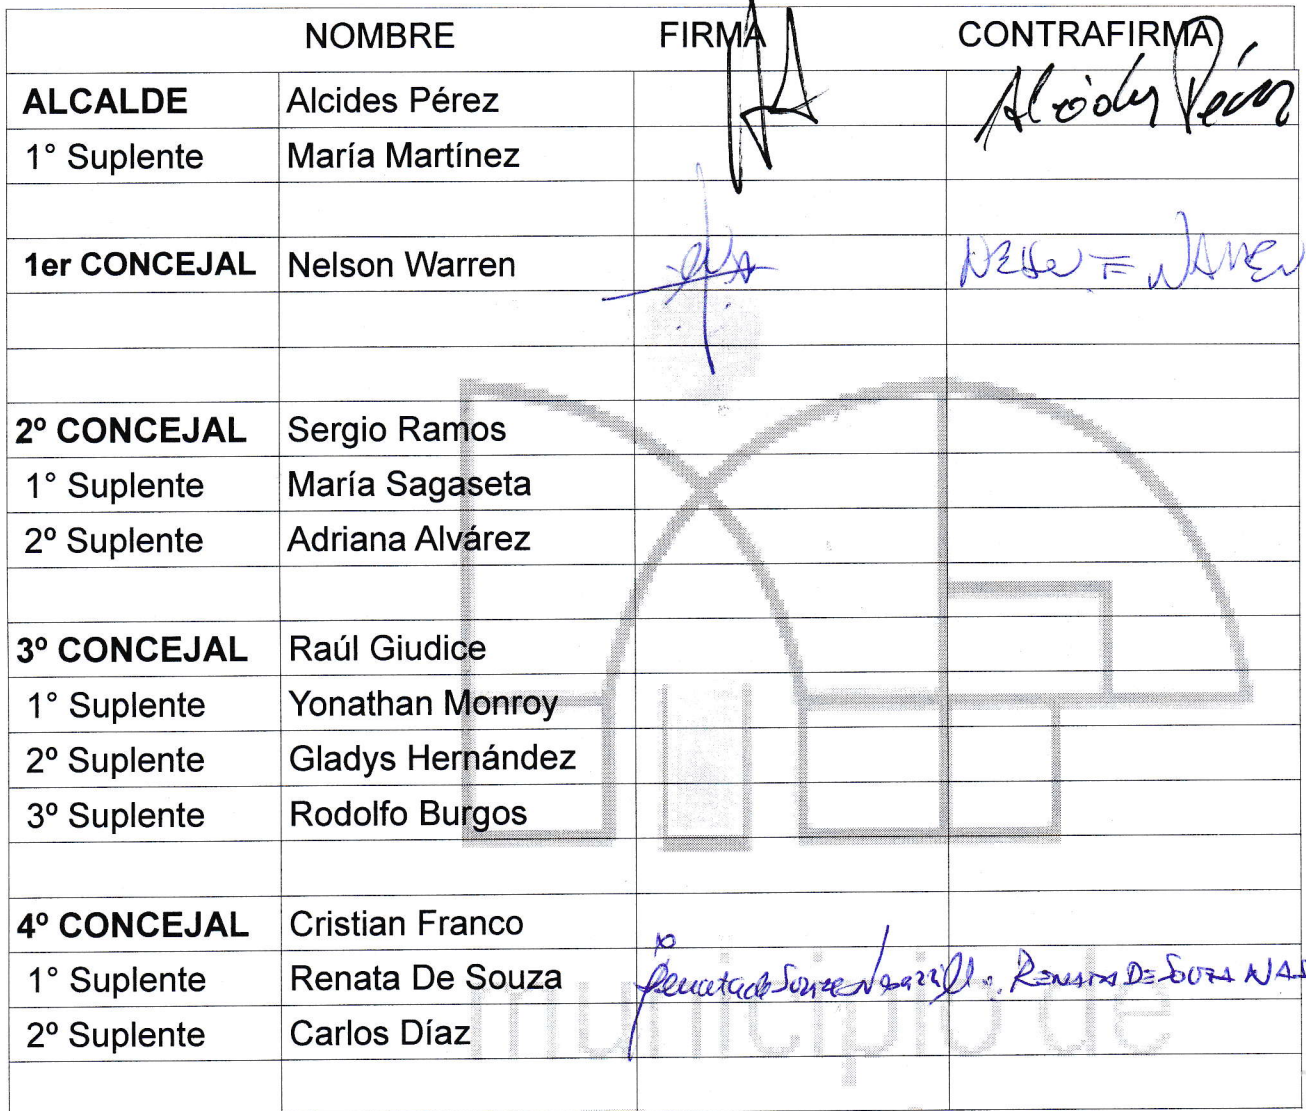 NOMBRE FIRMA CONTRAFIRMA
ALCALDE Alcides Pérez Alcides Pérez
1° Suplente María Martínez
1er CONCEJAL Nelson Warren
2º CONCEJAL Sergio Ramos
1° Suplente María Sagaseta
2º Suplente Adriana Alvárez
3º CONCEJAL Raúl Giudice
1° Suplente Yonathan Monroy
2º Suplente Gladys Hernández
3º Suplente Rodolfo Burgos
4º CONCEJAL Cristian Franco
1° Suplente Renata De Souza RENATA DE SOUZA
2º Suplente Carlos Díaz
municipio de